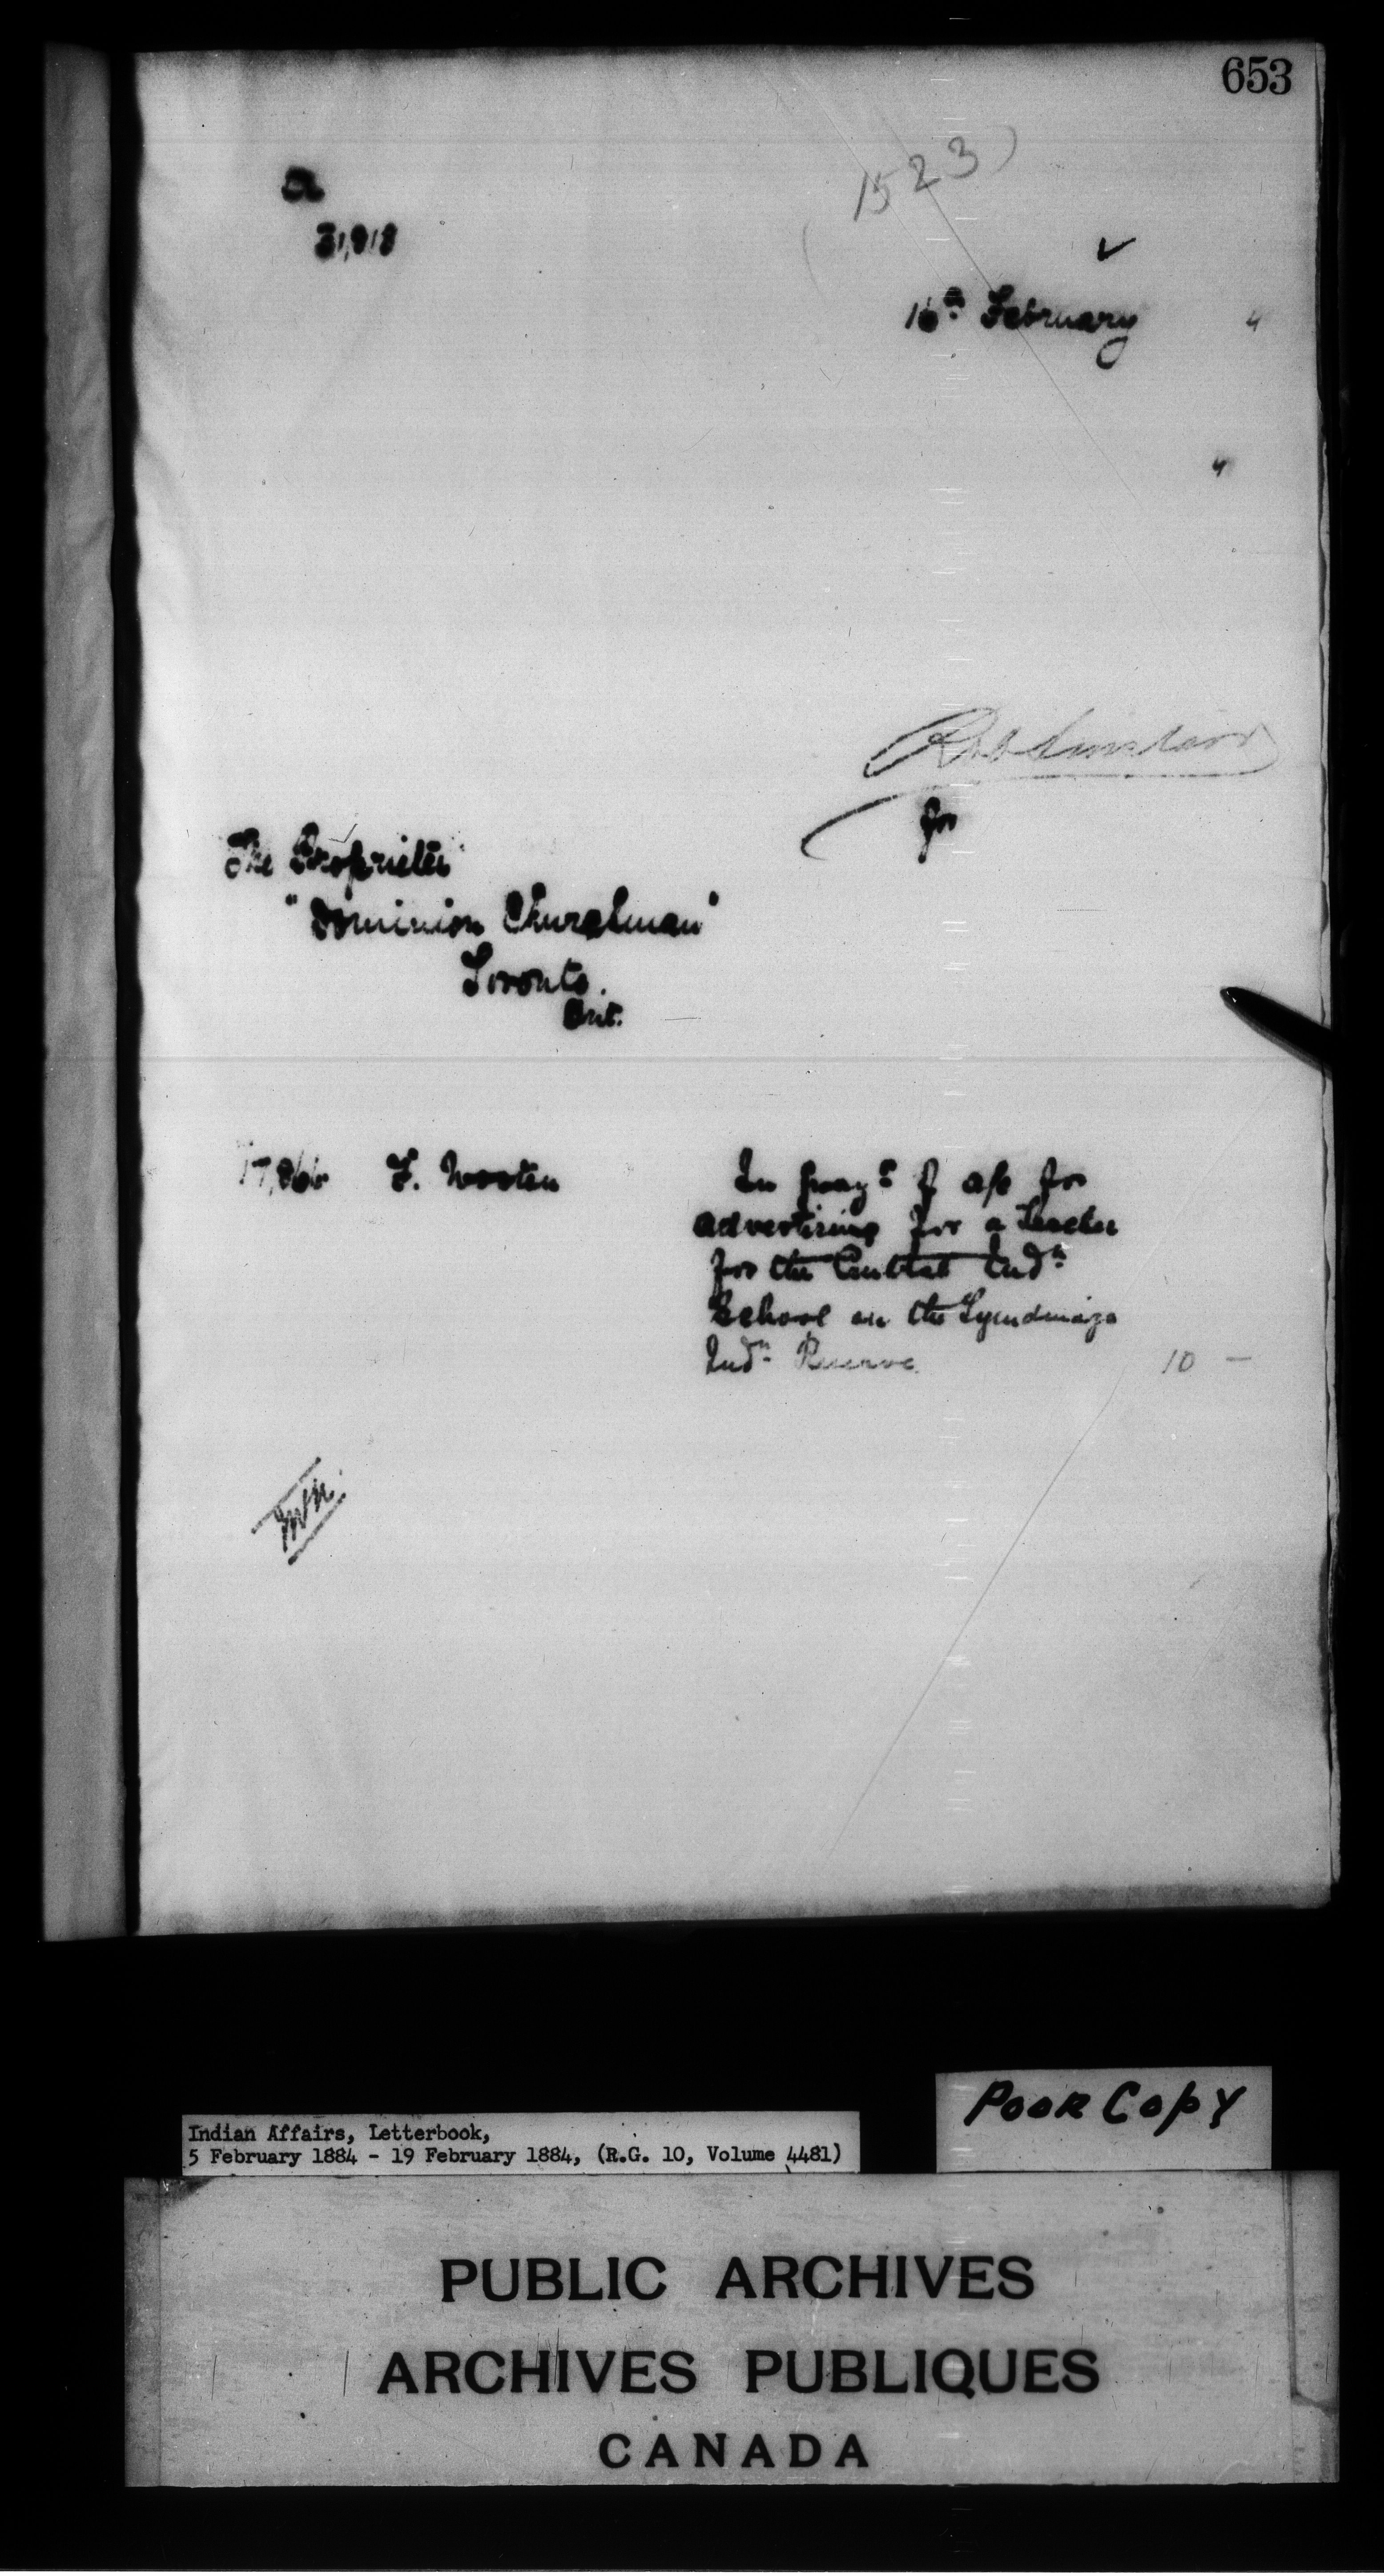 653
(1523)
31,918
✓
16th February 4
4
for
The Proprietor
"Dominion Churchman"
Toronto.
Ont.
17,866 F. Wooten In paymt of a/c for
advertising for a Teacher
for the Central Indn
School on the Tyendinaga
Indn Reserve 10 —
Poor Copy
Indian Affairs, Letterbook,
5 February 1884 - 19 February 1884, (R.G. 10, Volume 4481)
PUBLIC ARCHIVES
ARCHIVES PUBLIQUES
CANADA